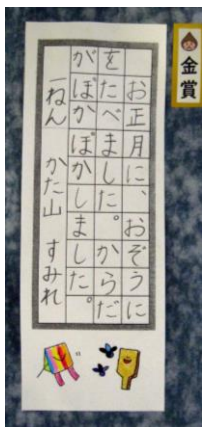 金賞
お正月に、おぞうに
をたべました。からだ
がぽかぽかしました。
一ねん かた山 すみれ